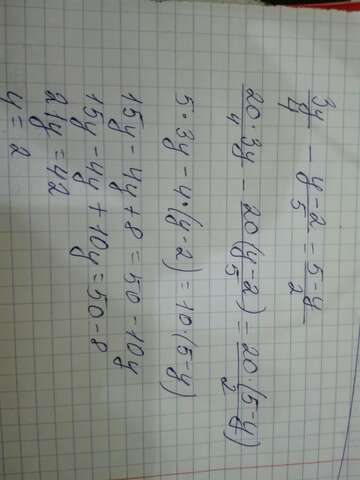 3y/4 - y-2/5 = 5-y/2
20·3y/4 - 20(y-2)/5 = 20·(5-y)/2
5·3y-4·(y-2)=10·(5-y)
15y-4y+8=50-10y
15y-4y+10y=50-8
21y=42
y=2